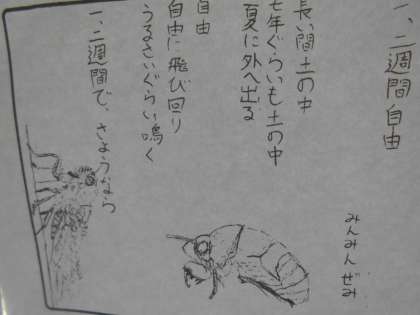 一、二週間自由
みんみんぜみ
長い間土の中
七年ぐらいも土の中
夏に外へ出る
自由
自由に飛び回り
うるさいぐらい鳴く
一、二週間で、さようなら